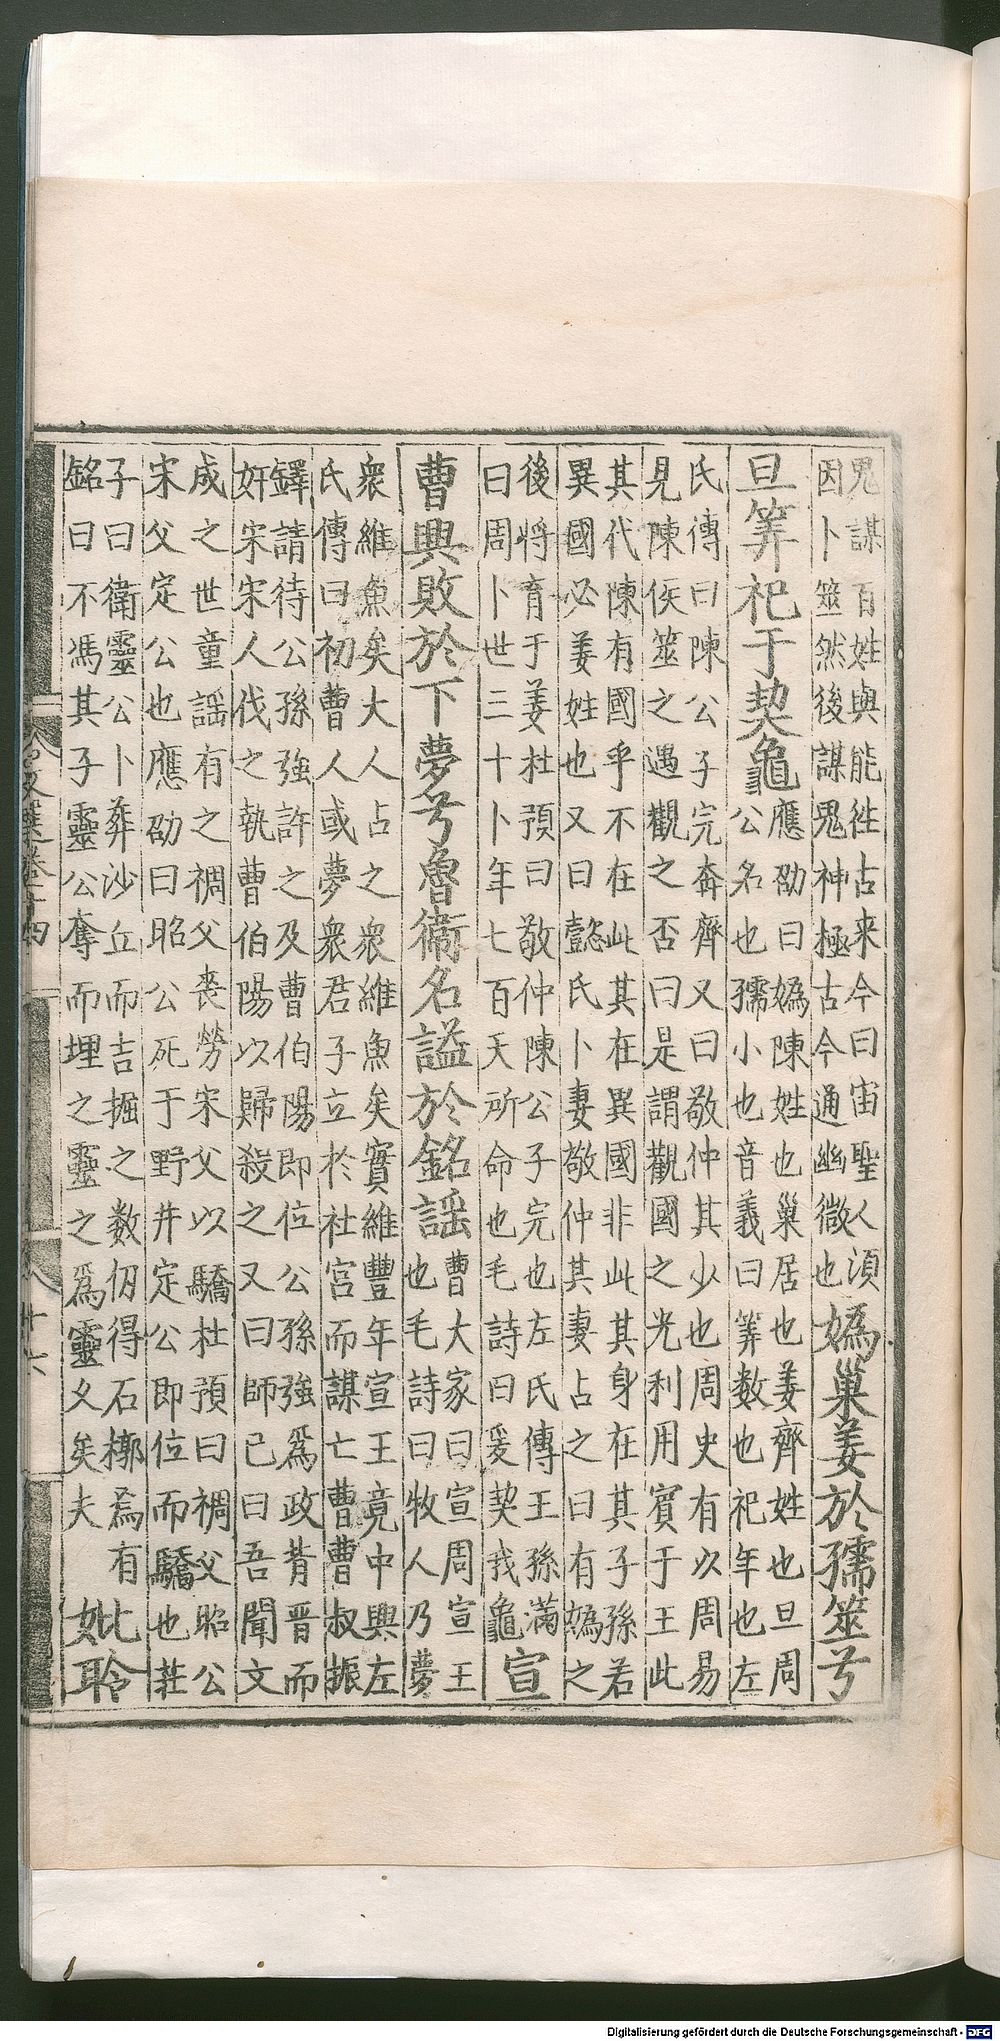 鬼謀百姓與能徃古来今曰宙聖人湏
因卜筮然後謀鬼神極古今通幽微也
媯巢姜於孺筮兮
旦筭祀于契龜
應劭曰媯陳姓也巢居也姜齊姓也旦周
公名也孺小也音義曰筭数也祀年也左
氏傳曰陳公子完奔齊又曰敬仲其少也周史有以周易
見陳侯筮之遇觀之否曰是謂觀國之光利用賓于王此
其代陳有國乎不在此其在異國非此其身在其子孫若
異國必姜姓也又曰懿氏卜妻敬仲其妻占之曰有媯之
後將育于姜杜預曰敬仲陳公子完也左氏傳王孫滿
曰周卜世三十卜年七百天所命也毛詩曰爰契我龜
宣
曹興敗於下夢兮魯衛名謚於銘謠
曹大家曰宣周宣王
也毛詩曰牧人乃夢
衆維魚矣大人占之衆維魚矣實維豐年宣王竟中興左
氏傳曰初曹人或夢衆君子立於社宮而謀亡曹曹叔振
鐸請待公孫強許之及曹伯陽即位公孫強爲政背晋而
奸宋宋人伐之執曹伯陽以歸殺之又曰師已曰吾聞文
成之世童謠有之禂父丧勞宋父以驕杜預曰禂父昭公
宋父定公也應劭曰昭公死于野井定公即位而驕也莊
子曰衛靈公卜葬沙丘而吉掘之数仞得石槨焉有
銘曰不馮其子靈公奪而埋之靈之爲靈久矣夫
妣聆
文選卷十四
Digitalisierung gefördert durch die Deutsche Forschungsgemeinschaft - DFG